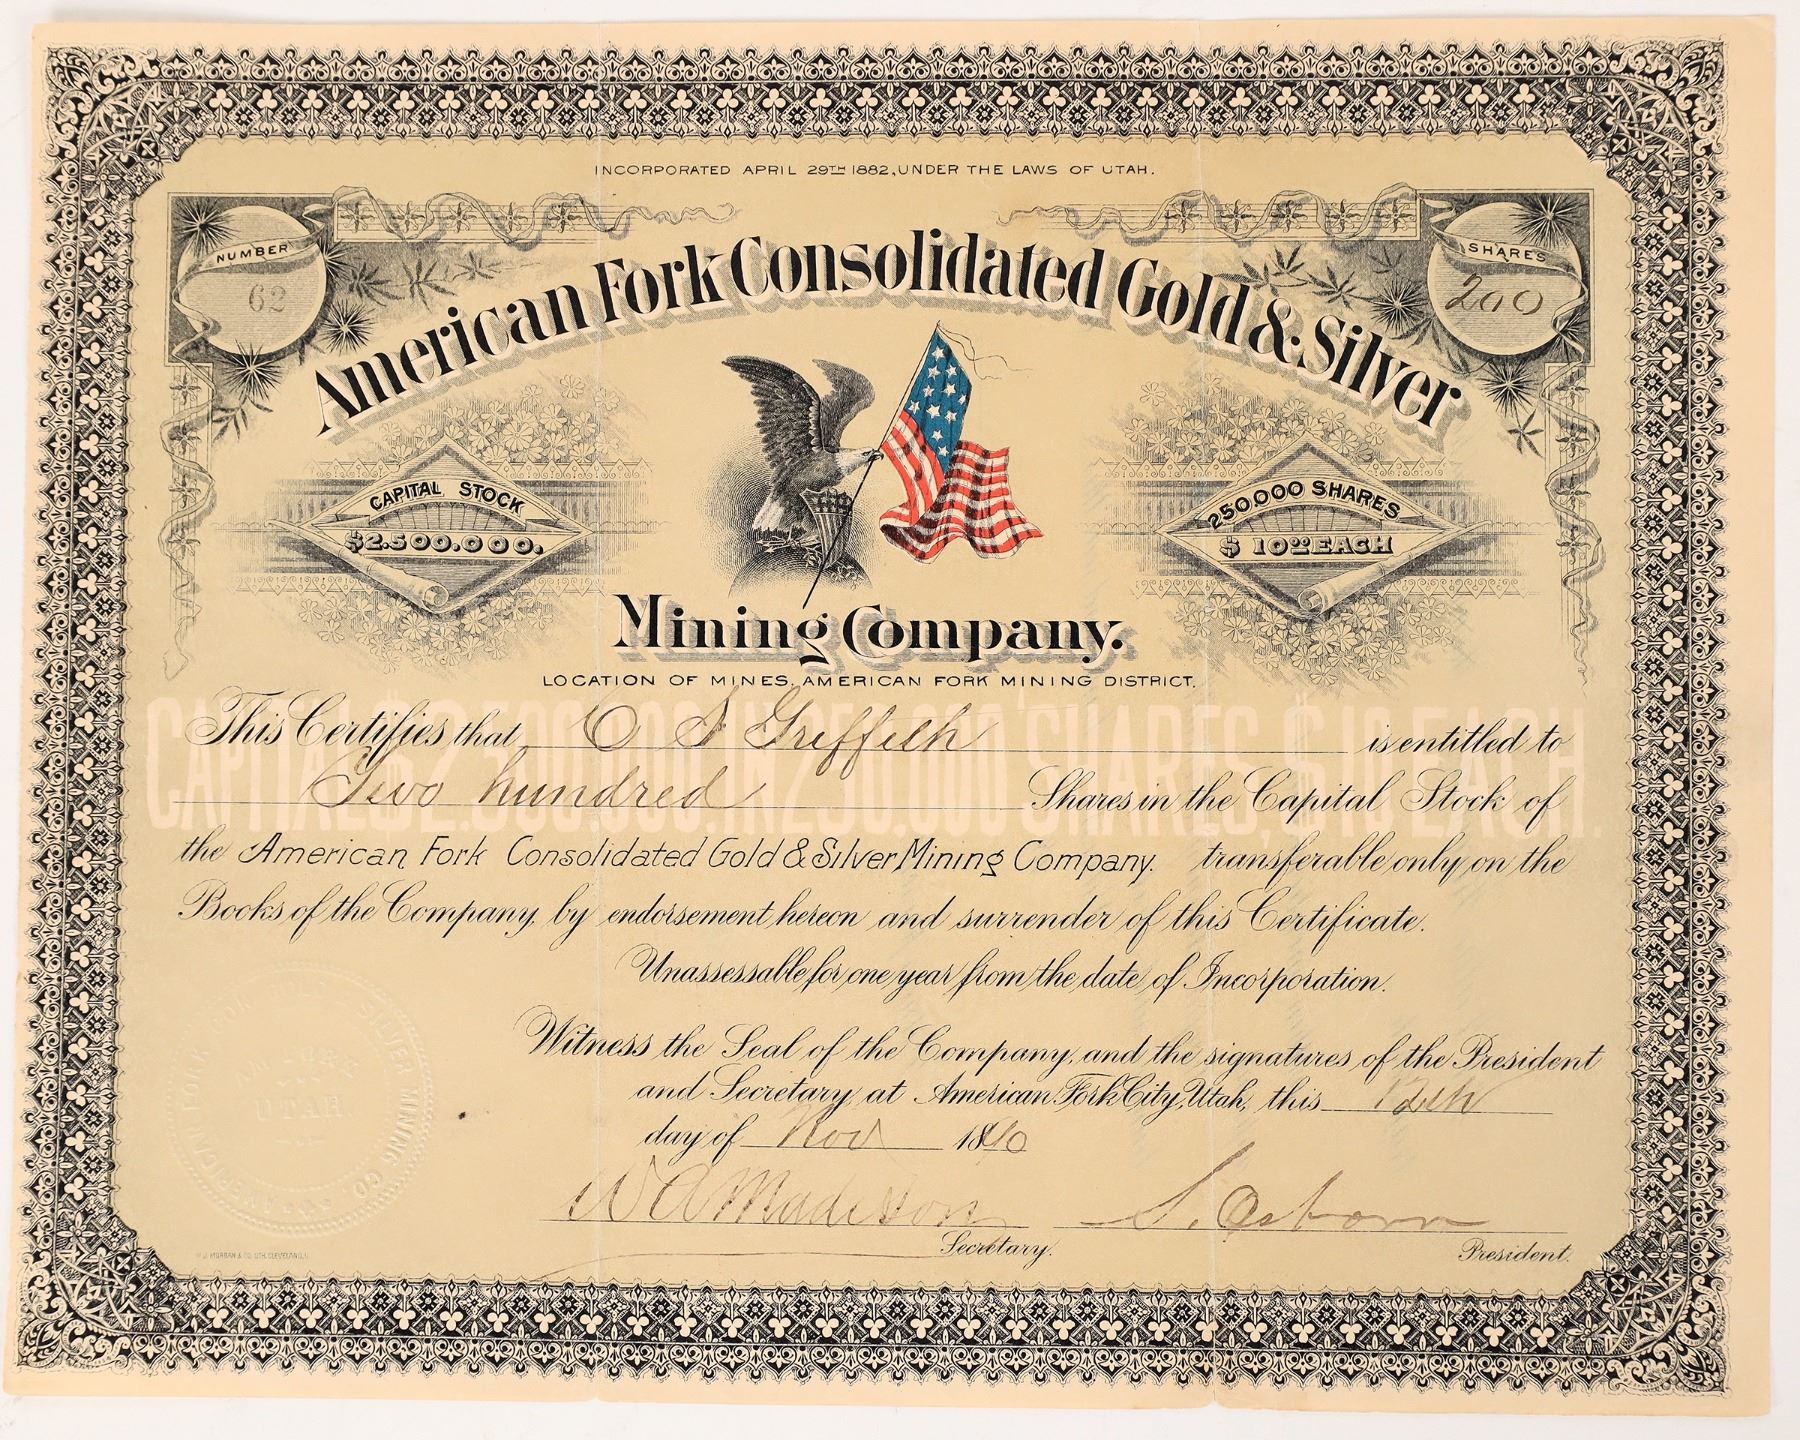 INCORPORATED APRIL 29TH 1882, UNDER THE LAWS OF UTAH.
NUMBER
62
SHARES
200
American Fork Consolidated Gold & Silver
CAPITAL STOCK
$2.500.000.
250.000 SHARES
$ 10.00 EACH
Mining Company.
LOCATION OF MINES, AMERICAN FORK MINING DISTRICT.
CAPITAL $2.500.000. IN 250.000 SHARES, $10 EACH.
This Certifies that O S Griffith is entitled to
Two hundred Shares in the Capital Stock of
the American Fork Consolidated Gold & Silver Mining Company. transferable only on the
Books of the Company, by endorsement hereon and surrender of this Certificate.
Unassessable for one year from the date of Incorporation.
Witness the Seal of the Company, and the signatures of the President
and Secretary, at American Fork City, Utah, this 12th
day of Nov 18
W A Madison S. Osborn
Secretary. President.
AMERICAN FORK CON SILVER MINING CO
UTAH
W.J. MORGAN & CO. LITH. CLEVELAND, O.